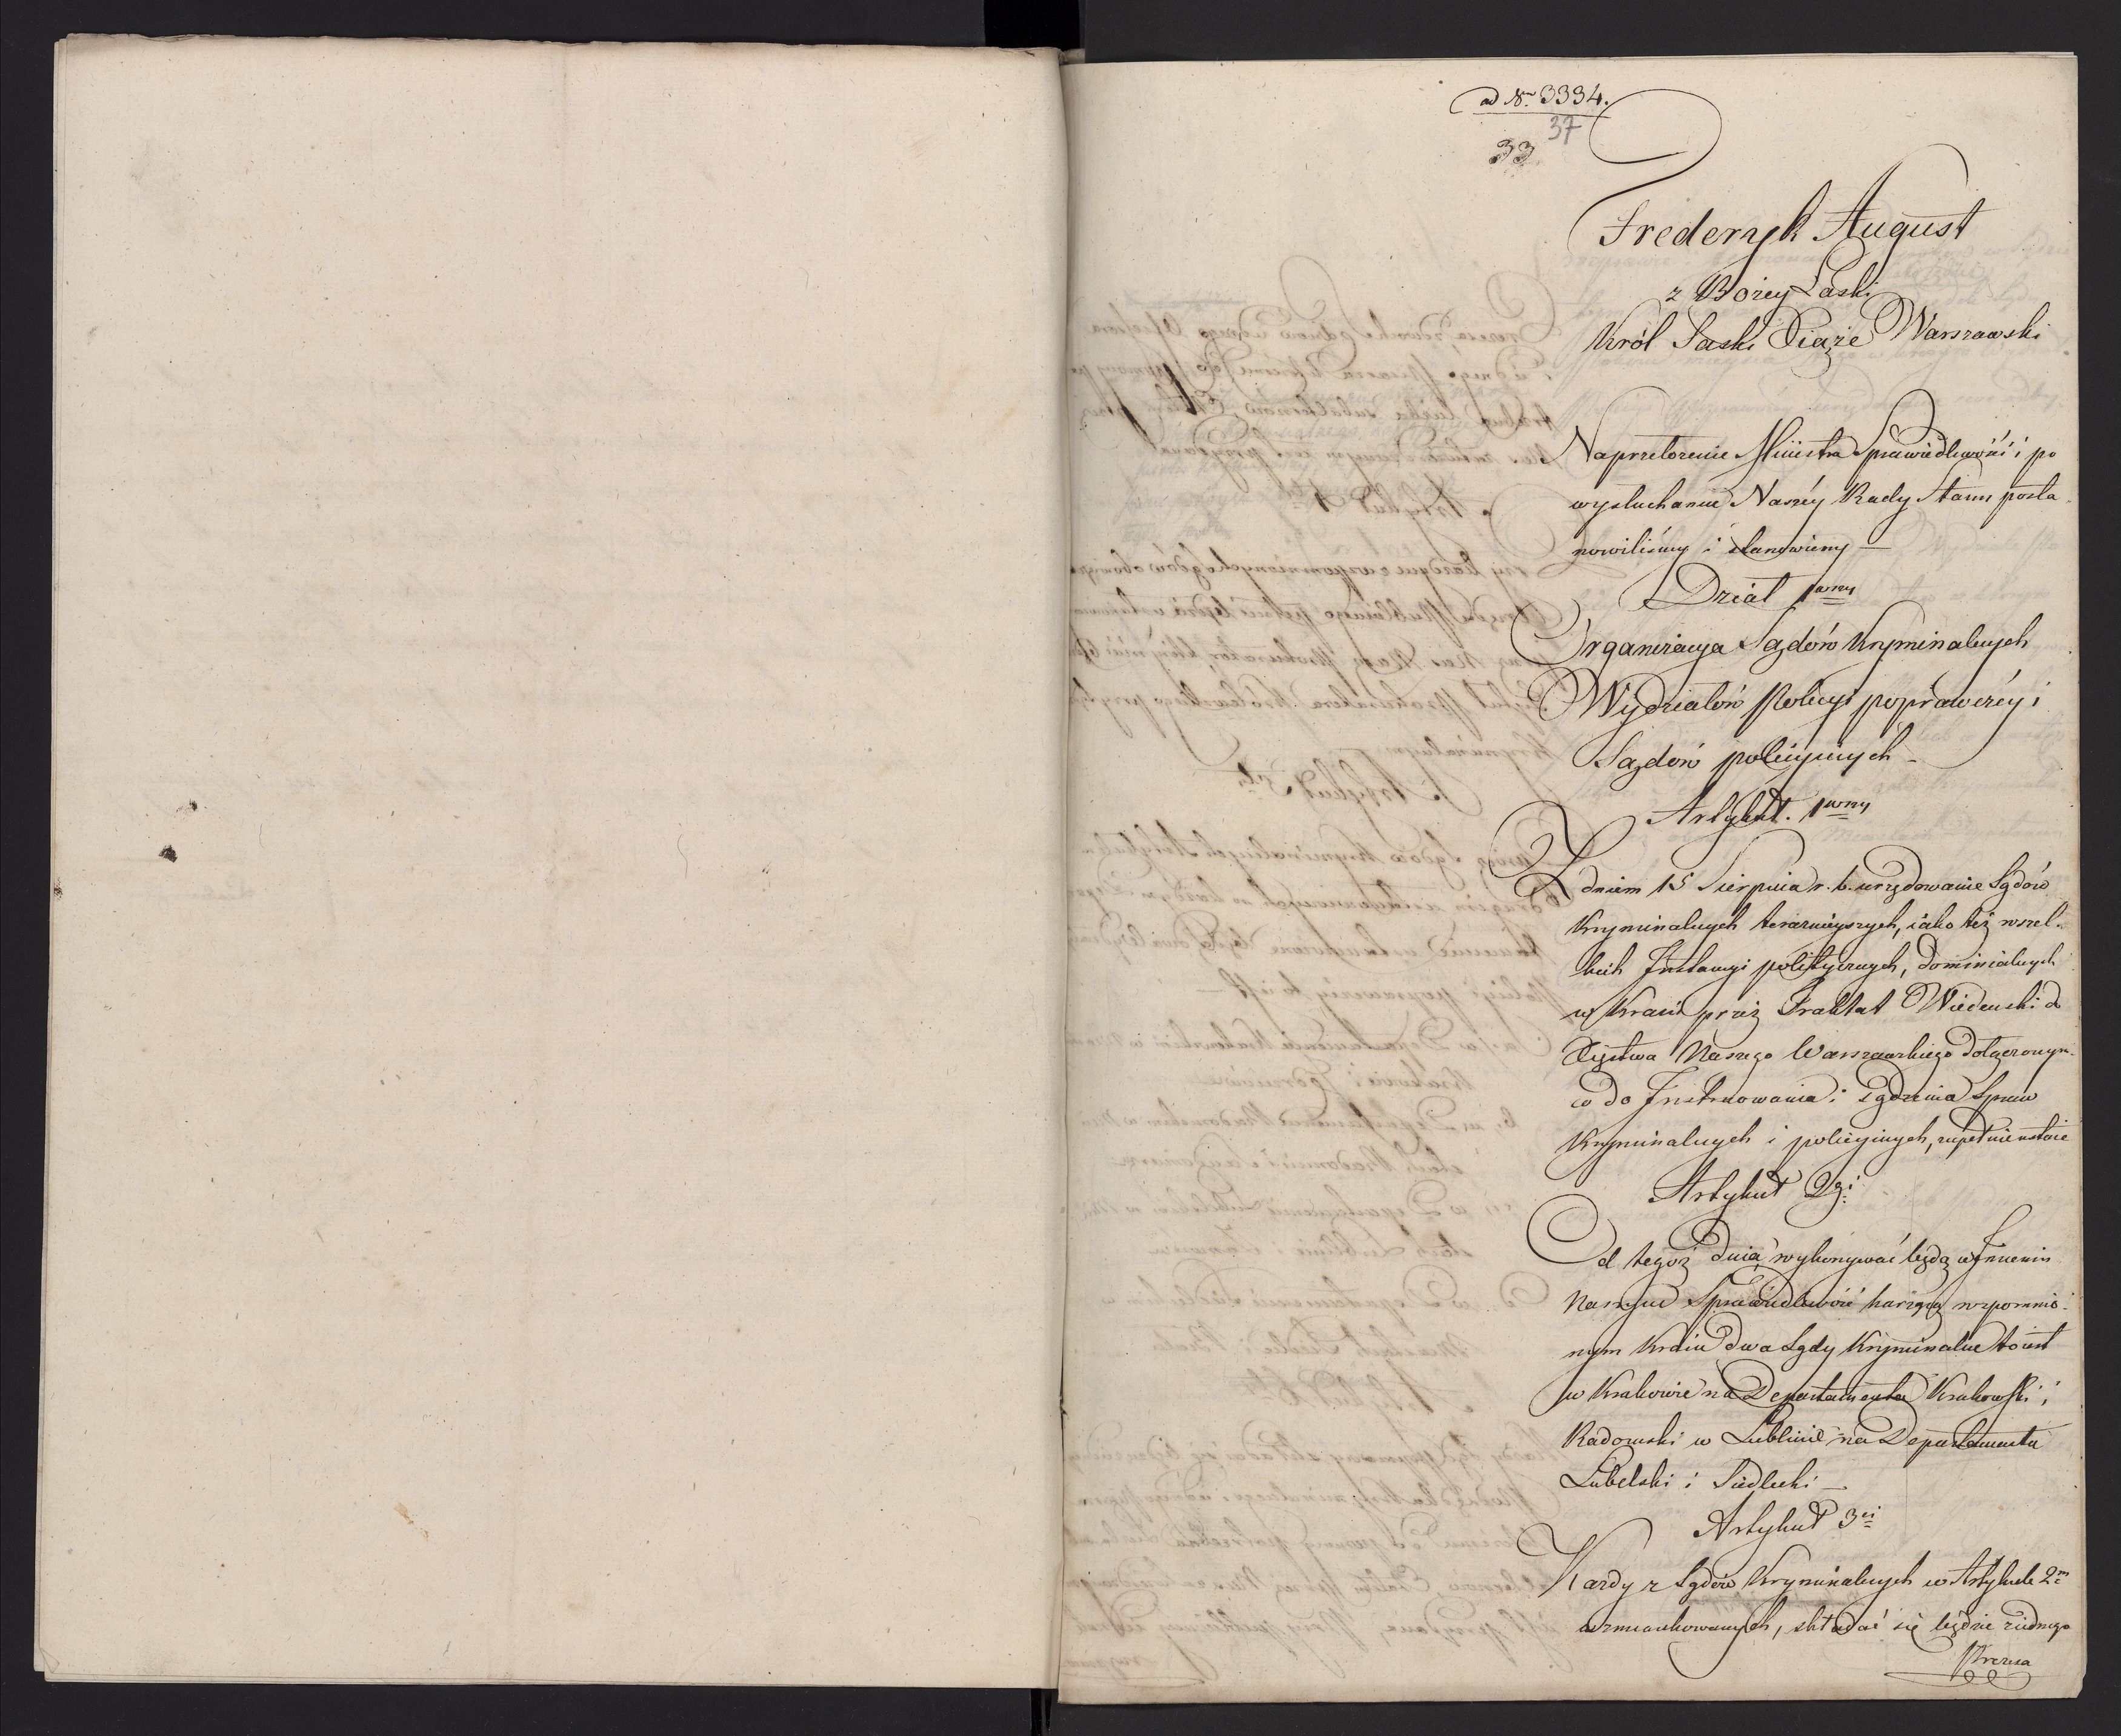 ad N. 3334.
37
33
Frederyk August
z Bożey Łaski
Król Saski Xiąże Warszawski
Na przełożenie Ministra Sprawiedliwości i po
wysłuchaniu Naszéy Rady Stanu posta
nowiliśmy i stanowiemy —
Dział 1wszy
Organizacya Sądów Kryminalnych
Wydziałów Policyi poprawczéy i
Sądów policyinych –
Artykuł. 1wszy
Z dniem 15 Sierpnia r. b. urzędowanie Sądów
Kryminalnych teraznieyszych, iako też wszel-
kich Instancyi politycznych, Dominialnych
w Kraiu przez Traktat Wiedenski do
Xięstwa Naszego Warszawskiego dołączonym
co do Instruowania i sądzenia Spraw
Kryminalnych i policyinych, zupełnie ustaie
Artykuł 2gi
Od tegoż dnia wykonywać będą w Imieniu
Naszym Sprawiedliwość karzącą wspomnio-
nym Kraiu dwa Sądy Kryminalne to iest
w Krakowie na Departamenta Krakowski i
Radomski w Lublinie na Departamenta
Lubelski i Siedlecki —
Artykuł 3ci
Każdy z Sądów Kryminalnych w Artykule 2m
wzmiankowanych, składać się będzie z iednego
Prezesa